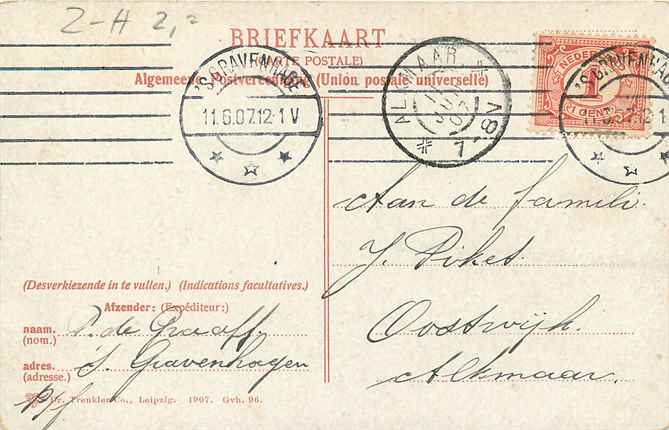 Z-H 2,=
BRIEFKAART
(CARTE POSTALE)
Algemeene Postvereeniging (Union postale universelle)
'S GRAVENHAGE
11.6.07.12-1 V
ALKMAAR
7-8V
NEDERLAND
1
CENT
'S GRAVENHAGE
11.6.07.12-1 V
Aan de familie
J. Piket.
Oostwijk.
Alkmaar.
(Desverkiezende in te vullen.) (Indications facultatives.)
Afzender: (Expéditeur:)
naam. P. de Graaff.
(nom.)
adres. s. Gravenhagen
(adresse.)
Dr. Trenkler Co., Leipzig. 1907. Gvh. 96.